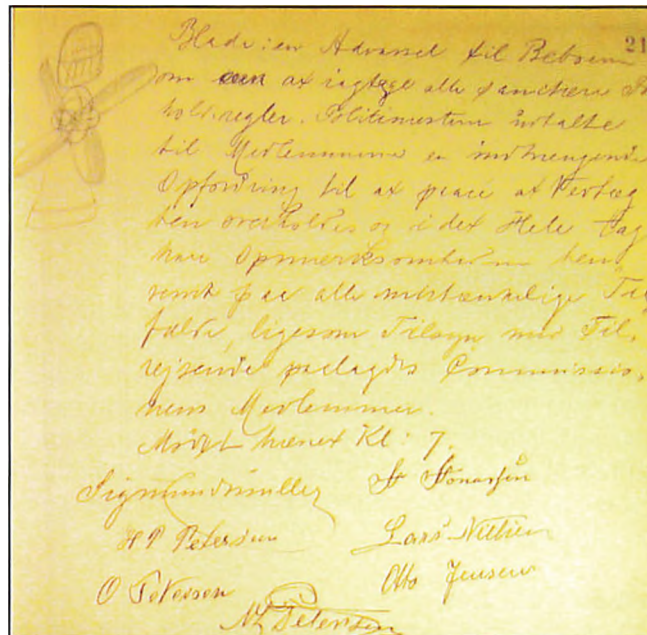 21
Blade: en Advarsel til Beboerne
om at iagttage alle
holdsregler. Politimesteren udtalte
til Medlemmerne en indtrængende
Opfordring til at paase at Vedtæg
ten overholdes og i det Hele tag
have Opmærksomheden hen
vendt paa alle mistænkelige Til
fælde, ligesom Tilsyn med Til.
rejsende paalagdes Commissio
nens Medlemmer.
Mødet hævet Kl: 7.
Sigmundmüller
H P Petersen
Lars Nielsen
Otto Jensen
Petersen